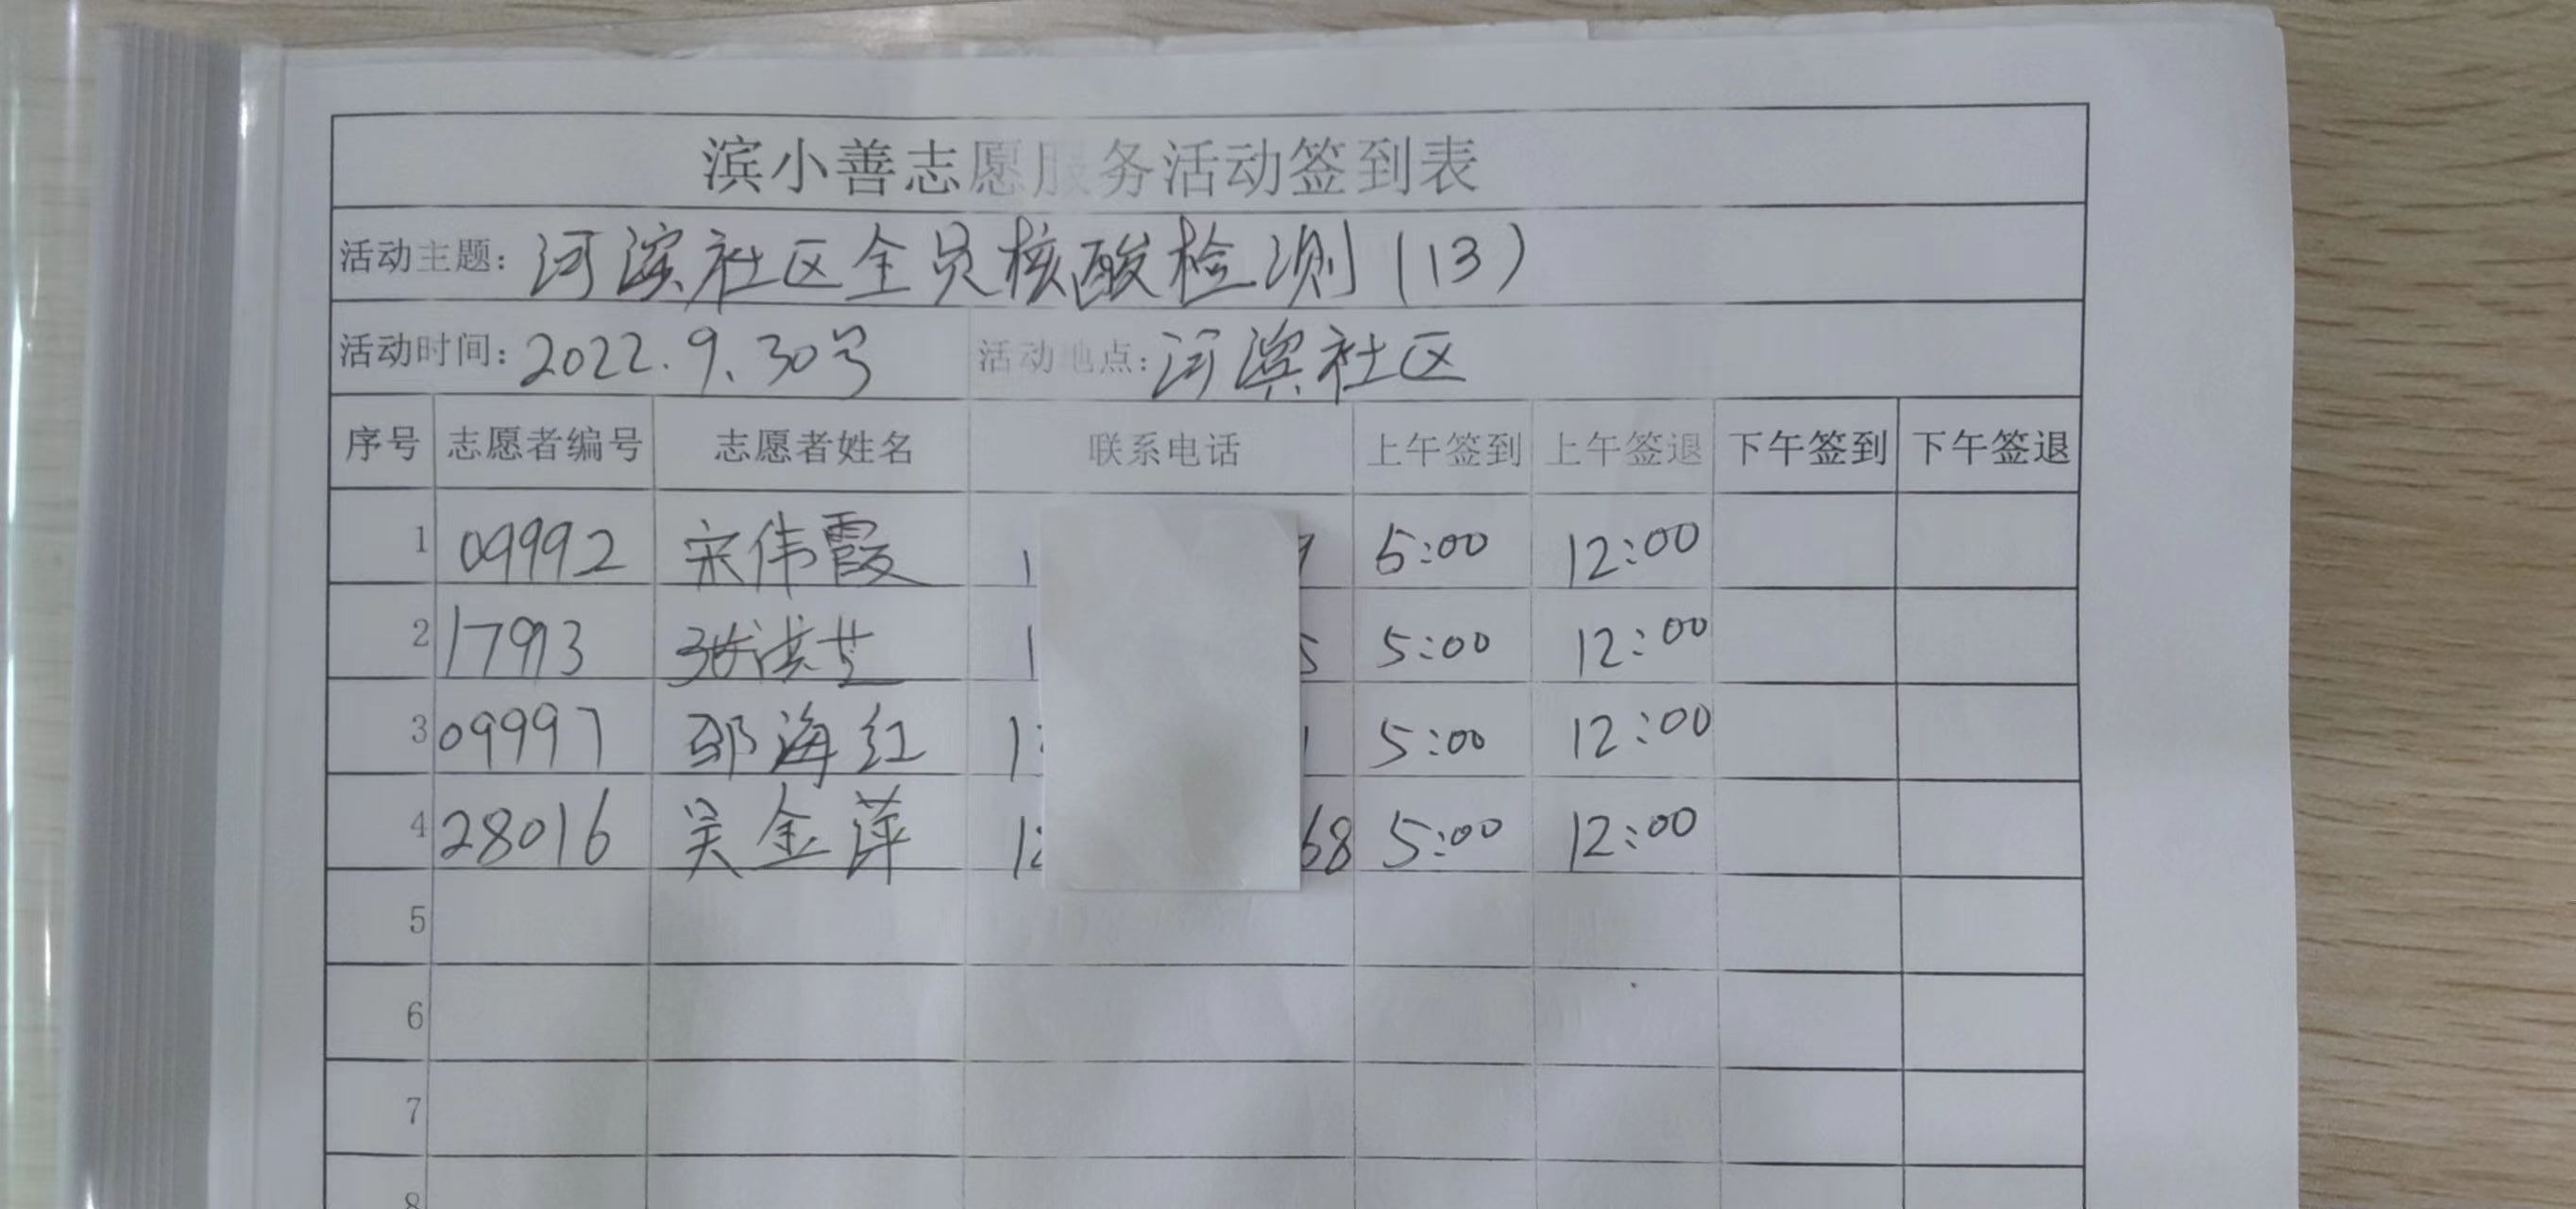 滨小善志愿服务活动签到表
活动主题：河滨社区全员核酸检测(13)
活动时间：2022.9.30号 活动地点：河滨社区
序号 志愿者编号 志愿者姓名 联系电话 上午签到 上午签退 下午签到 下午签退
1 09992 宋伟霞 1 9 5:00 12:00
2 17913 张洪芝 1 5 5:00 12:00
3 09997 邹海红 1 1 5:00 12:00
4 28016 吴金萍 1 68 5:00 12:00
5
6
7
8